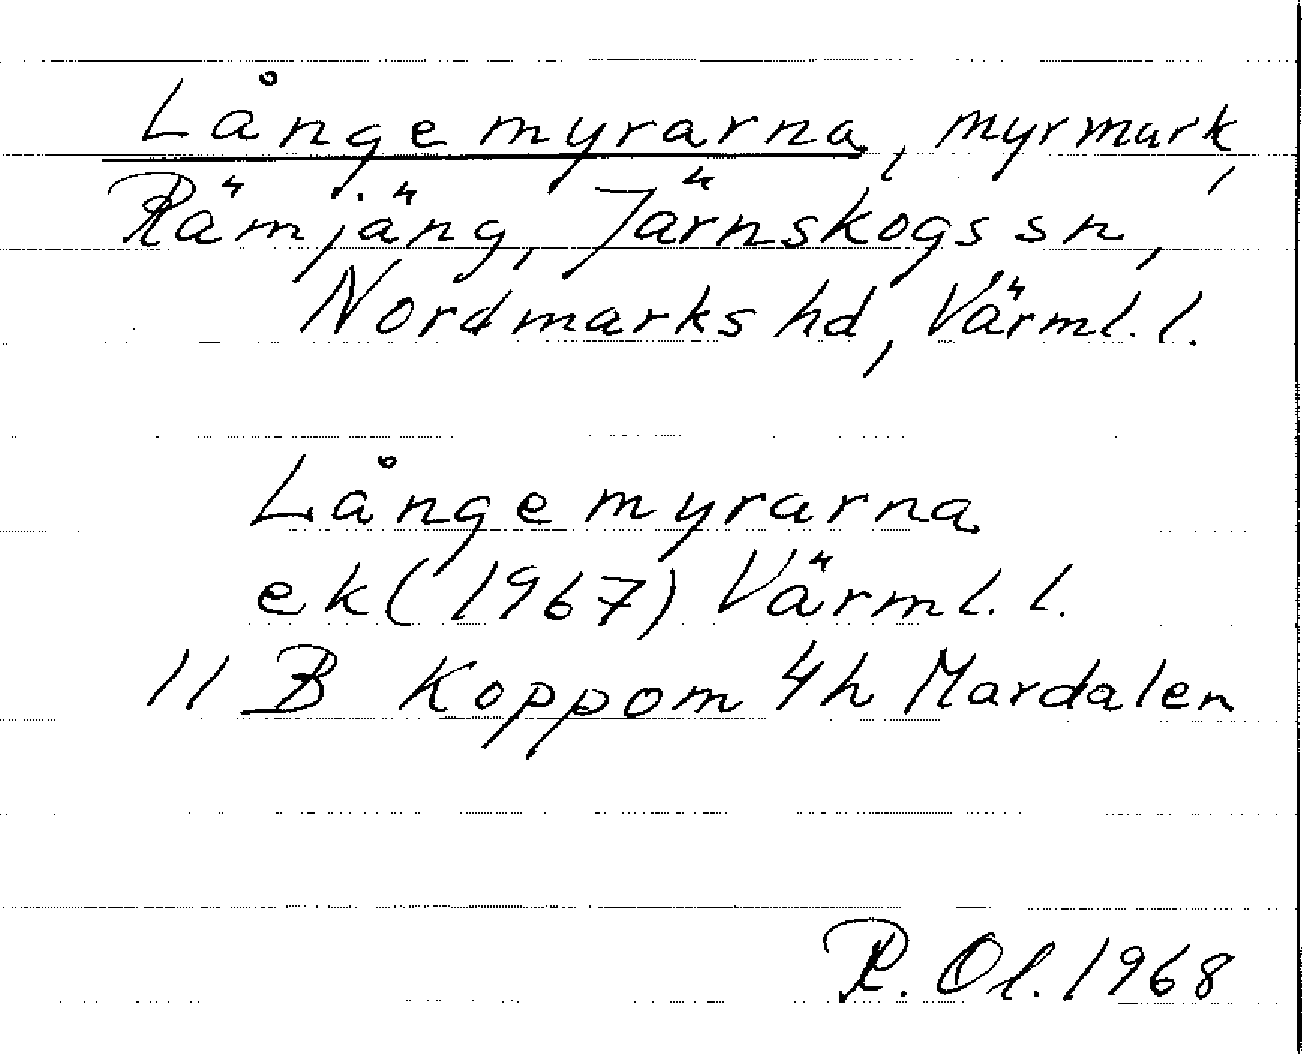 Långemyrarna, myrmark,
Rämjäng, Järnskogs sn,
Nordmarks hd, Värml. l.
Långemyrarna
ek (1967) Värml. l.
11 B Koppom 4h Mardalen
R. Ol. 1968